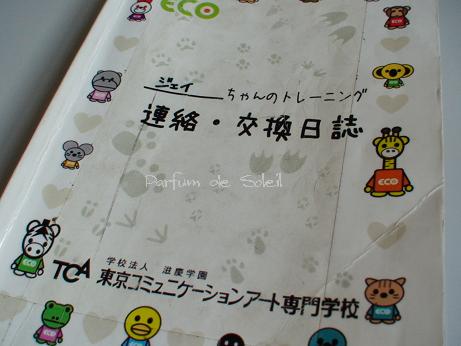 eco
ジェイ ちゃんのトレーニング
連絡・交換日誌
Parfum de Soleil
eco
eco
TCA 学校法人 滋慶学園
東京コミュニケーションアート専門学校
eco